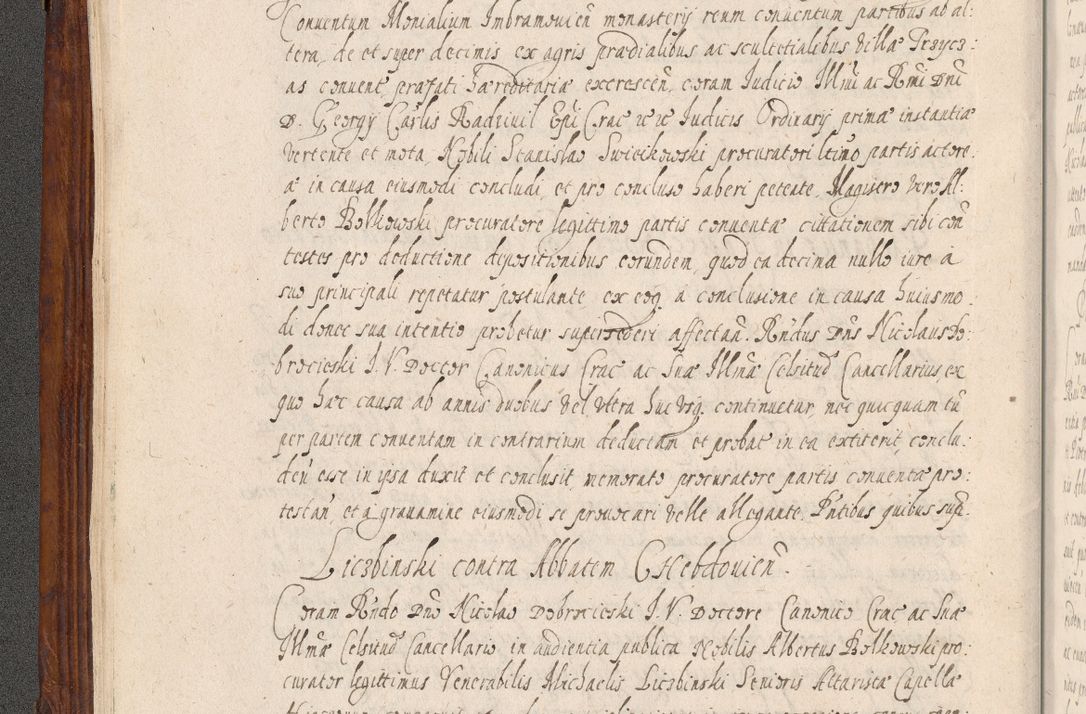 Conventum Monialium Imbramovicen̄ monasterij reum conventum partibus ab al:
tera, de et super decimis ex agris prædialibus ac scultetialibus Villæ Przycz:
as convent, præfati hæreditariæ excrescen̄, coram Iudicio Illmi ac Rmi Dni
D. Georgy Carlis Radzivil Epi Crac̄ etc etc Iudicis Ordinarij primæ instantiæ
vertente et mota, Nobili Stanislao Swiecikowski procuratori ltimo partis actore:
æ in causa eiusmodi concludi, et pro concluso haberi petente. Magistro vero Al:
berto Bolkowski procuratore legittimo partis conventæ cittationem sibi con̄
testes pro deductione depositionibus eorundem, quod ea decima nullo iure à
suo principali repetatur postulante, ex eoq à conclusione in causa huiusmo:
di donec sua intentio probetur supersederi affectan̄. Rn̄dus Dn̄s Nicolaus Do:
brocieski I. V. Doctor Canonicus Crac̄ ac Suæ Illmæ Celsitud̄ Cancellarius, ex
quo hæc causa ab annis duobus vel ultra huc usq continuetur, nec quicquam tū
per partem conventam in contrarium deductam et probat̄ in ea extiterit, conclu:
den̄ esse in ipsa duxit et conclusit, memorato procuratore partis conventæ pro:
testan̄, et à gravamine eiusmodi se provocari velle allegante. Pn̄tibus quibus sup̄.
Liczbinski contra Abbatem CHebdovien̄.
Coram Rn̄do Dn̄o Nicolao Dobrocieski I. V. Doctore Canonico Crac̄ ac Suæ
Illmæ Celsitud̄ Cancellario in audientia publica Nobilis Albertus Bolkowski pro:
curator legittimus Venerabilis Michaelis Liczbinski Senioris Altaristæ Capellæ